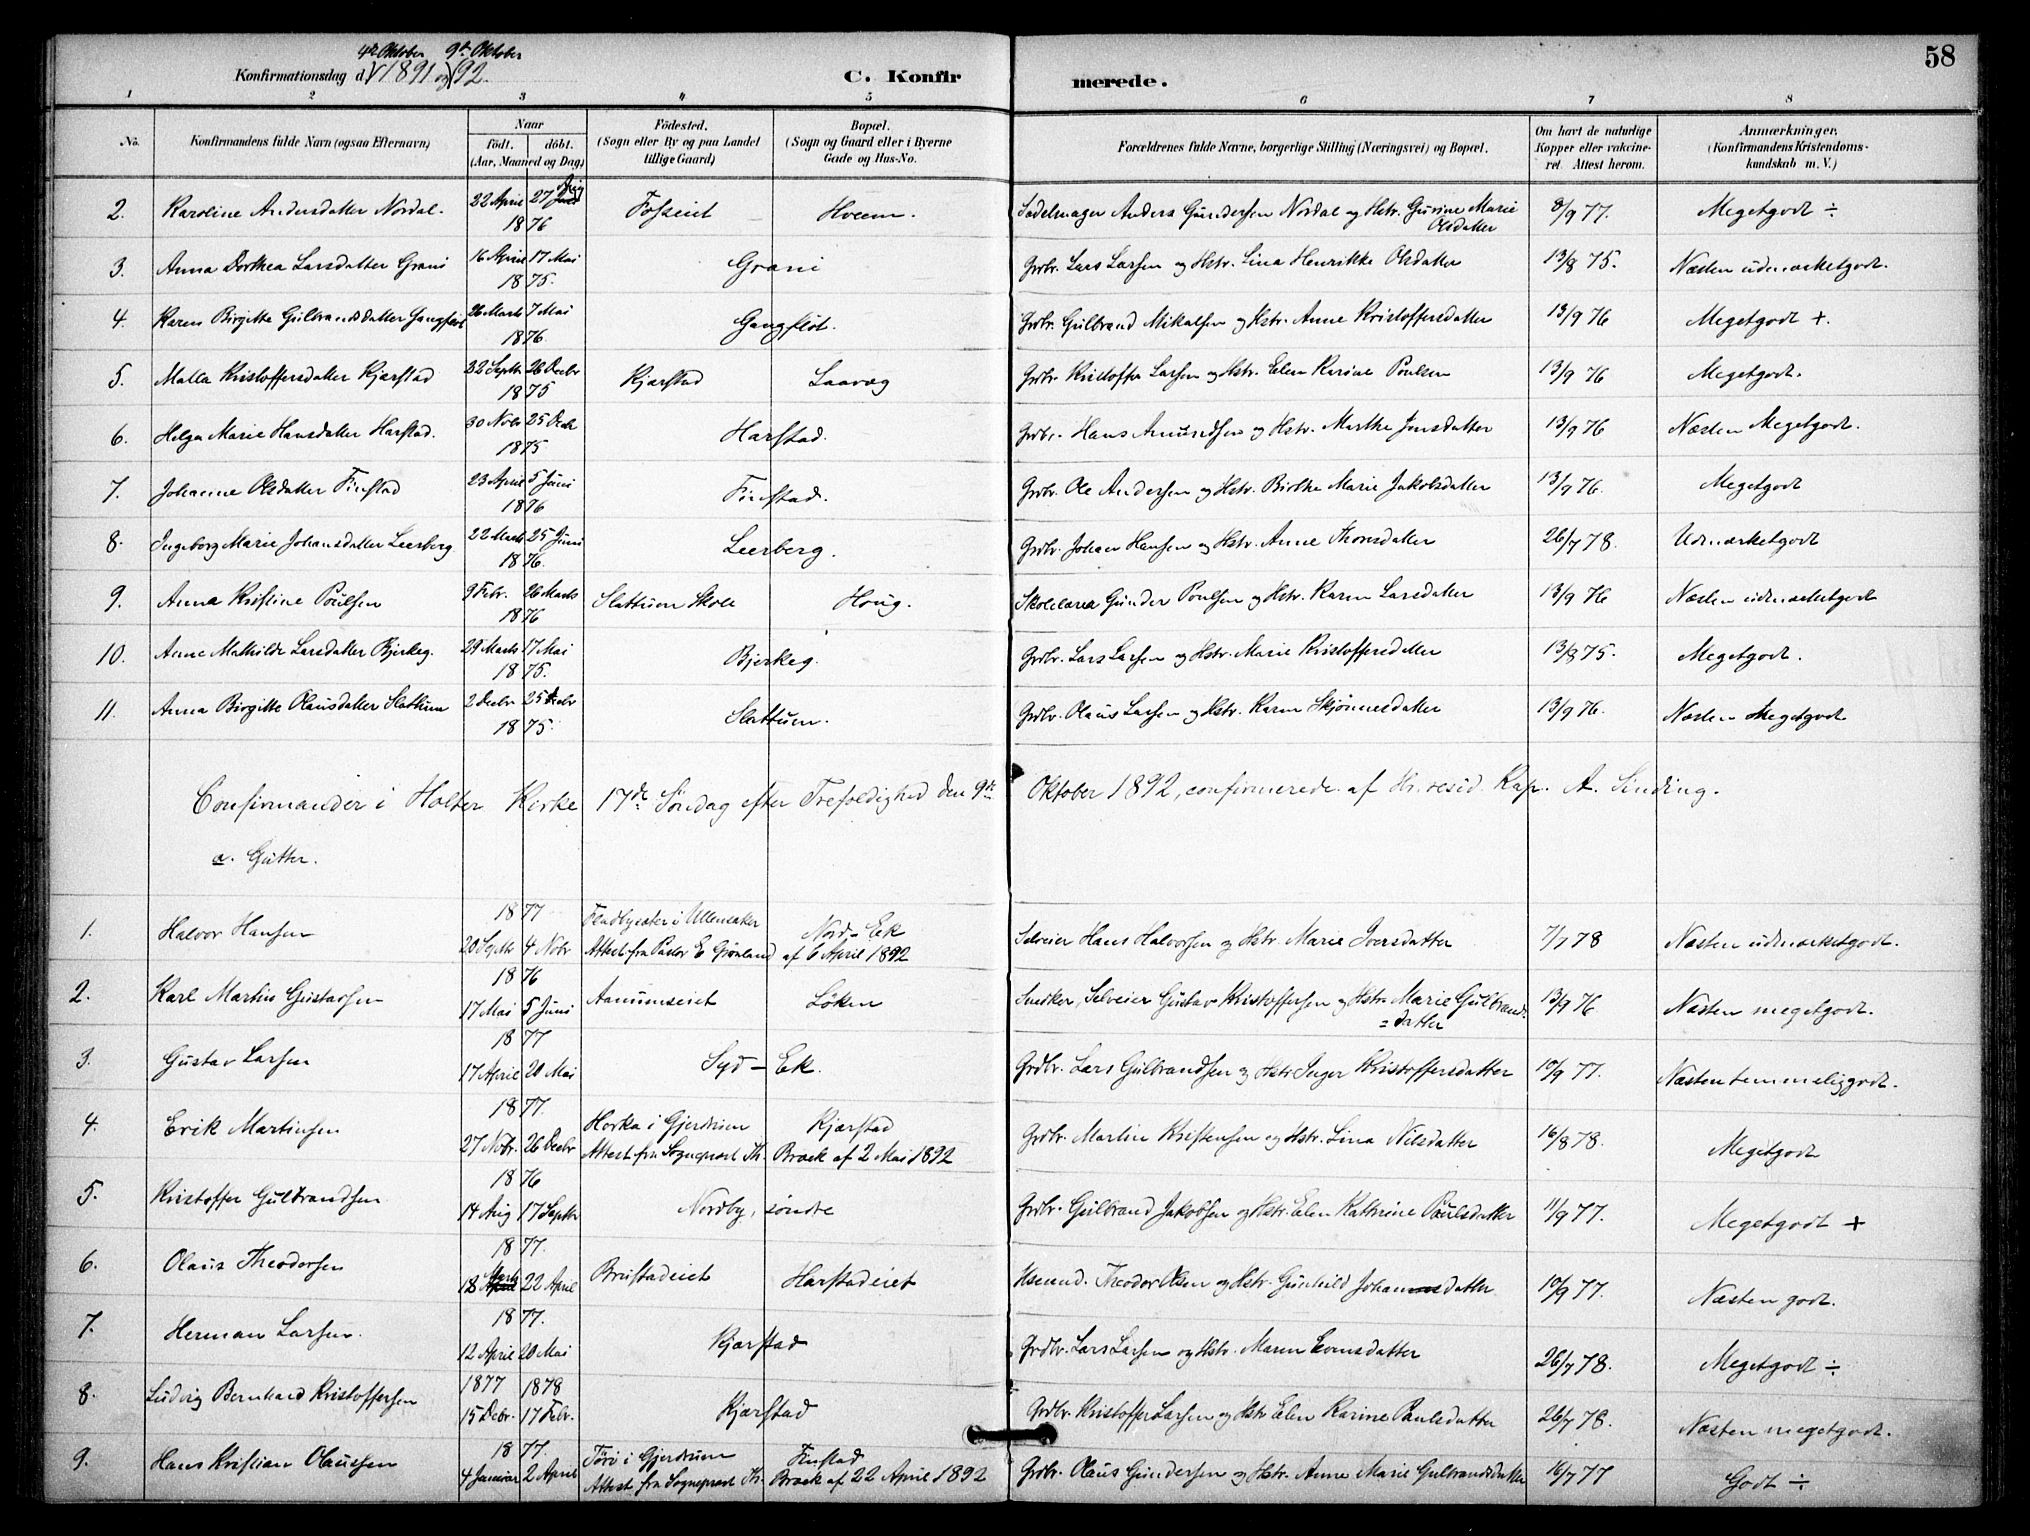 58
4de Oktober 9de Oktober
Konfirmationsdag d. 1891 og 92.
C. Konfirmerede.
1 2 3 4 5 6 7 8
No. Konfirmandens fulde Navn (ogsaa Efternavn) Naar født. døbt. (Aar, Maaned og Dag) Fødested. (Sogn eller By og paa Landet tillige Gaard) Bopæl. (Sogn og Gaard eller i Byerne Gade og Hus-No.) Forældrenes fulde Navne, borgerlige Stilling (Næringsvei) og Bopæl. Om havt de naturlige Kopper eller vakcineret. Attest herom. Anmærkninger. (Konfirmandens Kristendomskundskab m. V.)
2. Karoline Andersdatter Nordal. 22 April 27 1876 Fosseiet Hveem. Sadelmager Anders Gundersen Nordal og Hstr. Gurine Marie Olsdatter 8/9 77. Megetgodt ÷
3. Anna Dorthea Larsdatter Grani 16 April 17 Mai 1875. Grani Grdbr. Lars Larsen og Hstr. Lina Henrikke Olsdatter 13/8 75. Næsten udmærketgodt.
4. Karen Birgitte Gulbrandsdatter Gangfløt 26 Marts 7 Mai 1876. Gangfløt. Grdbr. Gulbrand Mikalsen og Hstr. Anne Kristoffersdatter 13/9 76 Megetgodt +.
5. Malla Kristoffersdatter Kjærstad 22 Septbr 26 Decbr 1875 Kjærstad Laavæg Grdbr. Kristoffer Larsen og Hstr. Elen Karine Poulsen 13/9 76 Megetgodt.
6. Helga Marie Hansdatter Harstad. 30 Novbr 25 Decbr 1875 Harstad. Grdbr. Hans Amundsen og Hstr. Marthe Jonsdatter 13/9 76 Næsten Megetgodt.
7. Johanne Olsdatter Finstad 23 April 5 Juni 1876 Finstad. Grdbr. Ole Andersen og Hstr. Birthe Marie Jakobsdatter 13/9 76. Megetgodt
8. Ingeborg Marie Johansdatter Leerberg 22 Marts 25 Juni 1876. Leerberg. Grdbr. Johan Hansen og Hstr. Anne Thorsdatter 26/7 78. Udmærketgodt
9. Anna Kristine Poulsen 9 Febr. 26 Marts 1876 Slattum Skole Houg. Skolelærer Gunder Poulsen og Hstr. Karen Larsdatter 13/9 76 Næsten udmærketgodt
10. Anne Mathilde Larsdatter Bjerkeg. 29 Marts 17 Mai 1875. Bjerkeg. Grdbr. Lars Larsen og Hstr. Marie Kristoffersdatter 13/8 75. Megetgodt.
11. Anna Birgitte Olausdatter Slattum 2 Decbr 25 Decbr 1875. Slattum. Grdbr. Olaus Larsen og Hstr. Karen Skjønnesdatter 13/9 76. Næsten Megetgodt
Confirmander i Holter Kirke 17de Søndag efter Trefoldighed den 9de Oktober 1892, confirmerede af Hr. resid. Kap. A. Sinding.
a. Gutter.
1. Halvor Hansen 1877 20 Septbr 4 Nobr Fladbysæter i Ullensaker Nord-Ek Selveier Hans Halvorsen og Hstr. Marie Iversdatter 7/7 78 Næsten udmærketgodt.
Attest fra Pastor E Grønland af 6 April 1892
2. Karl Martin Gustavsen 1876 17 Mai 5 Juni Aamumseiet Løken Snedker, Selveier Gustav Kristoffersen og Hstr. Marie Gulbrandsdatter 13/9 76 Næsten megetgodt.
3. Gustav Larsen 1877 17 April 20 Mai Syd-Ek. Grdbr. Lars Gulbrandsen og Hstr Inger Kristoffersdatter 10/9 77. Næsten temmeliggodt.
4. Erik Martinsen 1877. 27 Nobr. 26 Decbr Horka i Gjerdrum Kjærstad Grdbr. Martin Kristensen og Hstr. Lina Nilsdatter 16/8 78. Megetgodt
Attest fra Sognepræst Th. Broek af 2 Mai 1892
5. Kristoffer Gulbrandsen 1876 14 Aug 17 Septbr Nordby, søndre Grdbr. Gulbrand Jakobsen og Hstr. Elen Kathrine Poulsdatter 11/9 77. Megetgodt +
6. Olaus Theodorsen 1877. 18 Marts 22 April Brustadeiet Harstadeiet Husmd. Theodor Olsen og Hstr. Gunhild Johannesdatter 10/9 77. Næsten godt.
7. Herman Larsen. 1877. 12 April 20 Mai Kjærstad Grdbr. Lars Larsen og Hstr. Maren Evensdatter 26/7 78. Megetgodt ÷
8. Ludvig Bernhard Kristoffersen 1877 1878 15 Debr. 17 Febr. Kjærstad Grdbr. Kristoffer Larsen og Hstr Elen Karine Paulsdatter 26/7 78. Næsten megetgodt.
9. Hans Kristian Olaussen 1877. 4 Januar 2 April Tørv i Gjerdrum Finstad Grdbr. Olaus Gundersen og Hstr. Anne Marie Gulbrandsdatter 16/7 77 Godt ÷
Attest fra Sognepræst Th. Broek af 22 April 1892